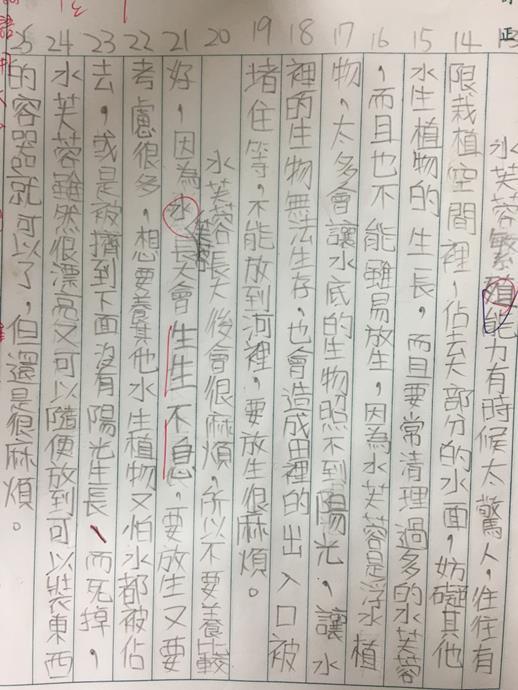 正
13 水芙蓉繁殖能力有時候太驚人，往往有
14 限栽植空間裡，佔去大部分的水面，妨礙其他
15 水生植物的生長，而且要常清理過多的水芙蓉
16 ，而且也不能雖易放生，因為水芙蓉是浮水植
17 物，太多會讓水底的生物照不到陽光，讓水
18 裡的生物無法生存，也會造成田裡的出入口被
19 堵住等，不能放到河裡，要放生很麻煩。
20 水芙蓉長大後會很麻煩，所以不要養比較
21 好，因為水芙蓉長大會生生不息，要放生又要
22 考慮很多，想要養其他水生植物又怕水都被佔
23 去，或是被擠到下面沒有陽光生長、而死掉，
24 水芙蓉雖然很漂亮又可以隨便放到可以裝東西
25 的容器就可以了，但還是很麻煩。